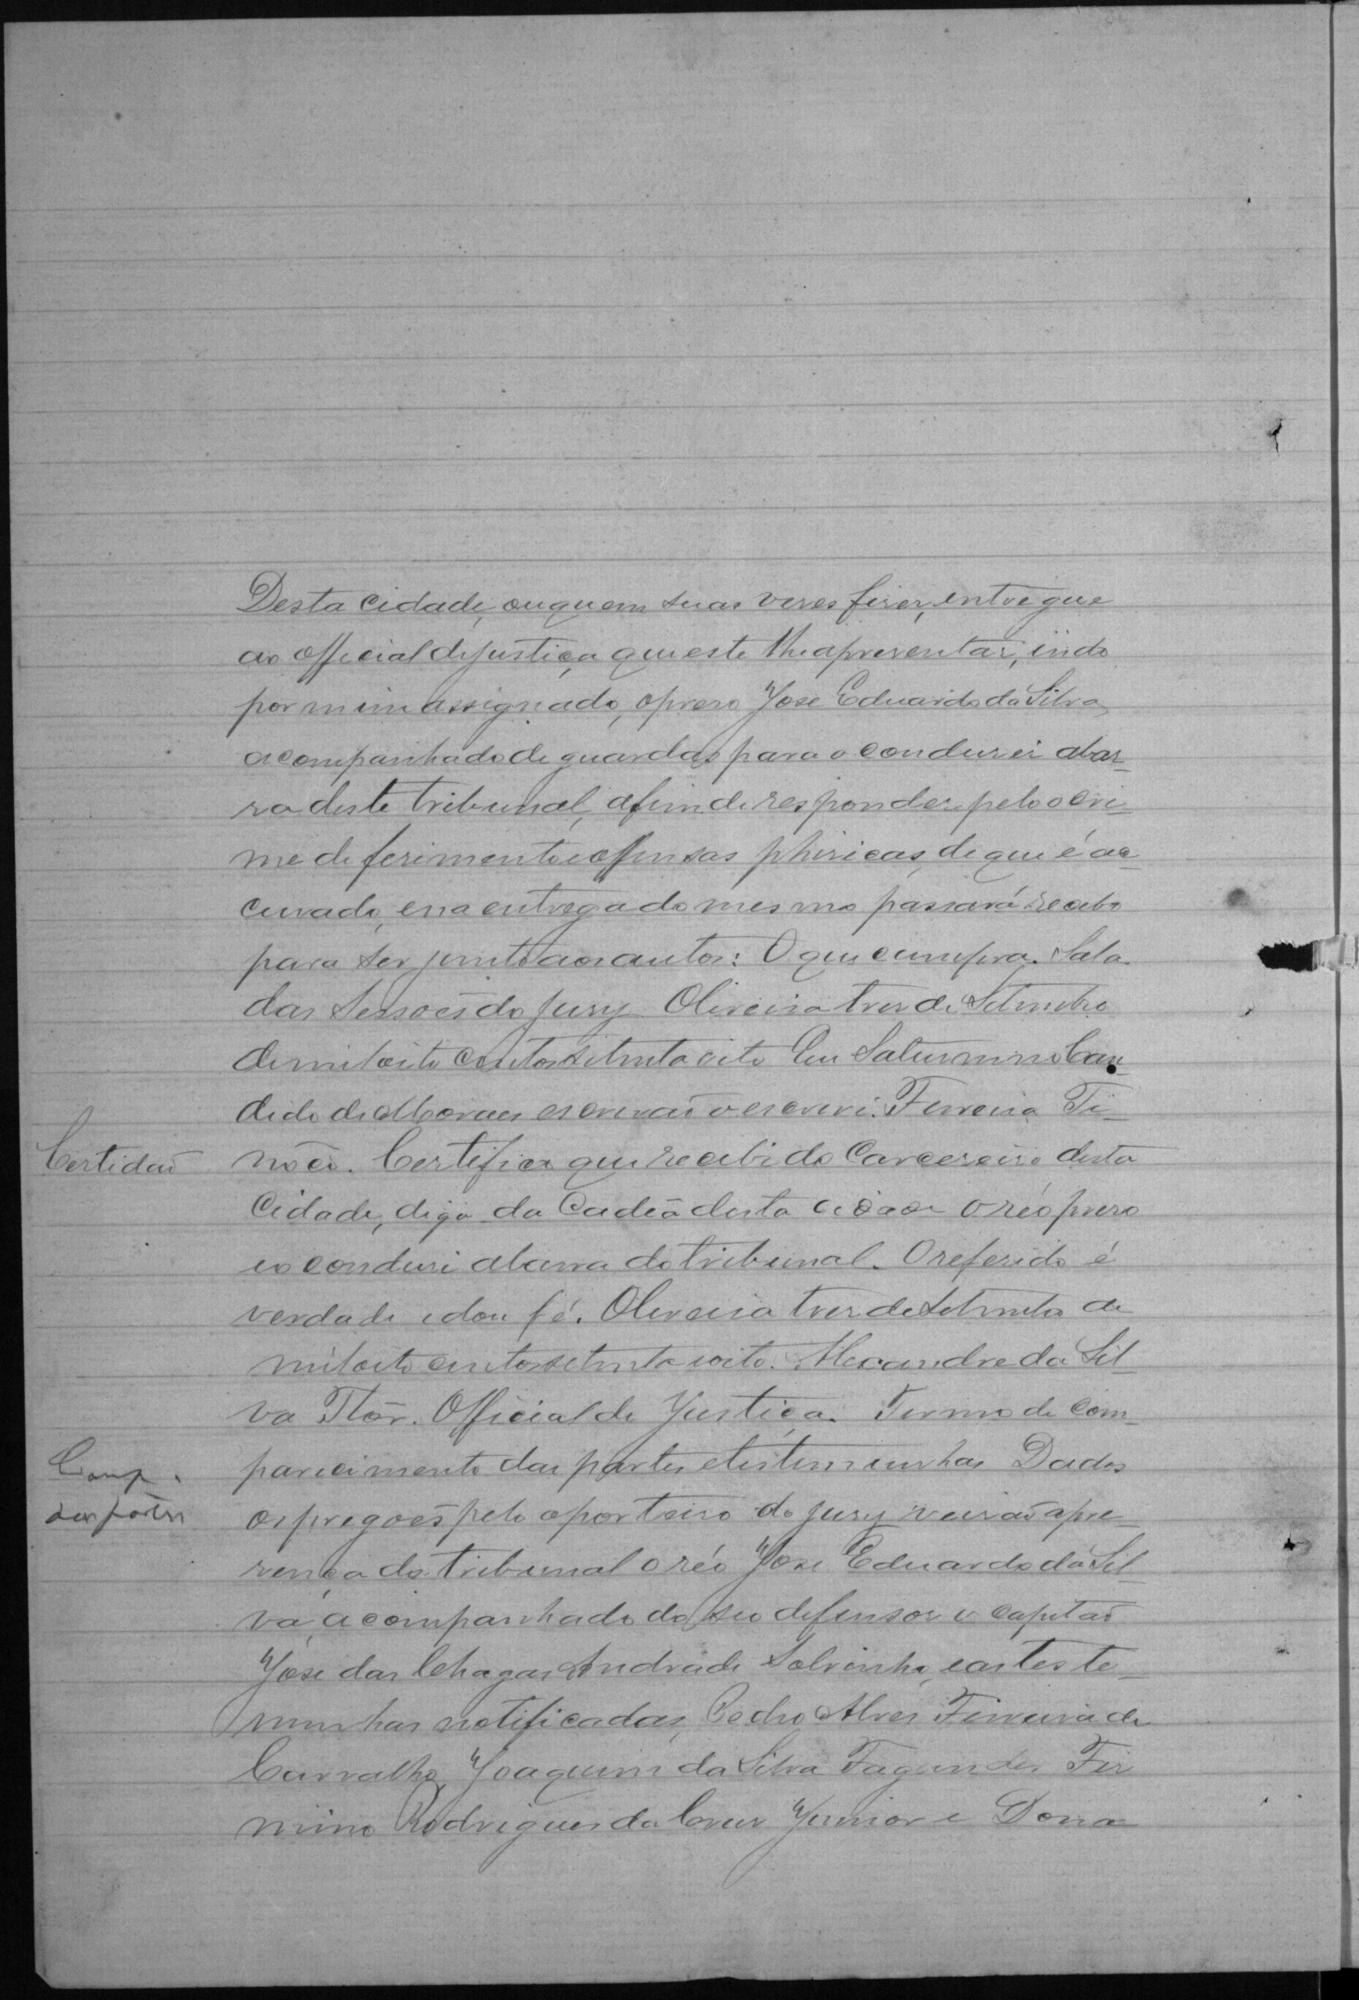 Desta cidade, ou quem suas veses fiser, entregue
ao official de justiça que este lhe apresentar, indo
por mim assignado, o preso José Eduardo da Silva,
acompanhado de guardas para o condusir a bar-
ra deste tribunal, afim de responder pelo o cri-
me de ferimento e offensas phisicas, de que é ac-
cusado, e na entrega do mesmo passará recibo
para ser junto aos autos: O que cumpra. Sala
das Sessões do Jury Oliveira tres de Setembro
de mil oito centos setenta oito Eu Saturnino Can-
dido de Moraes escrivão o escrevi. Ferreira Ti-
Certidão
nocô. Certifico que recebi do Carcereiro desta
Cidade, digo da Cadêa desta cidade o réo preso
e o condusi a barra do tribunal. O referido é
verdade e dou fé. Oliveira tres de Setembro de
mil oito centos setenta e oito. Alexandre da Sil-
va Flôr. Official de Justiça. Termo de com-
Comp.
das partes
parecimento das partes e testemunhas Dados
os pregões pelo o porteiro do jury veirão a pre-
sença do tribunal o réo José Eduardo da Sil-
va acompanhado do seo defensor o capitão
José das Chagas Andrade Sobrinho, e as teste-
munhas notificadas, Pedro Alves Ferreira de
Carvalho, Joaquim da Silva Fagundes Fir
mino Rodrigues da Crus Junior e Dona